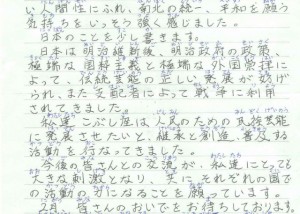 い人間性にふれ、南北の統一、平和を願う
気持ちをいっそう強く感じました。
日本のことを少し書きます。
日本は明治維新後、明治政府の政策、
極端な国粋主義と極端な外国崇拝に
よって、伝統芸能の正しい発展が妨げ
られ、また支配者によって戦争に利用
されてきました。
私達こぶし座は人民のための民族芸能
に発展させたいと、継承と創造、普及する
活動を行なってきました。
今後の皆さんとの交流が、私達にとっても
大きな刺激となり、共に、それぞれの国で
の活動の力になることを願っています。
2月 皆さんのおいでをお待ちしております